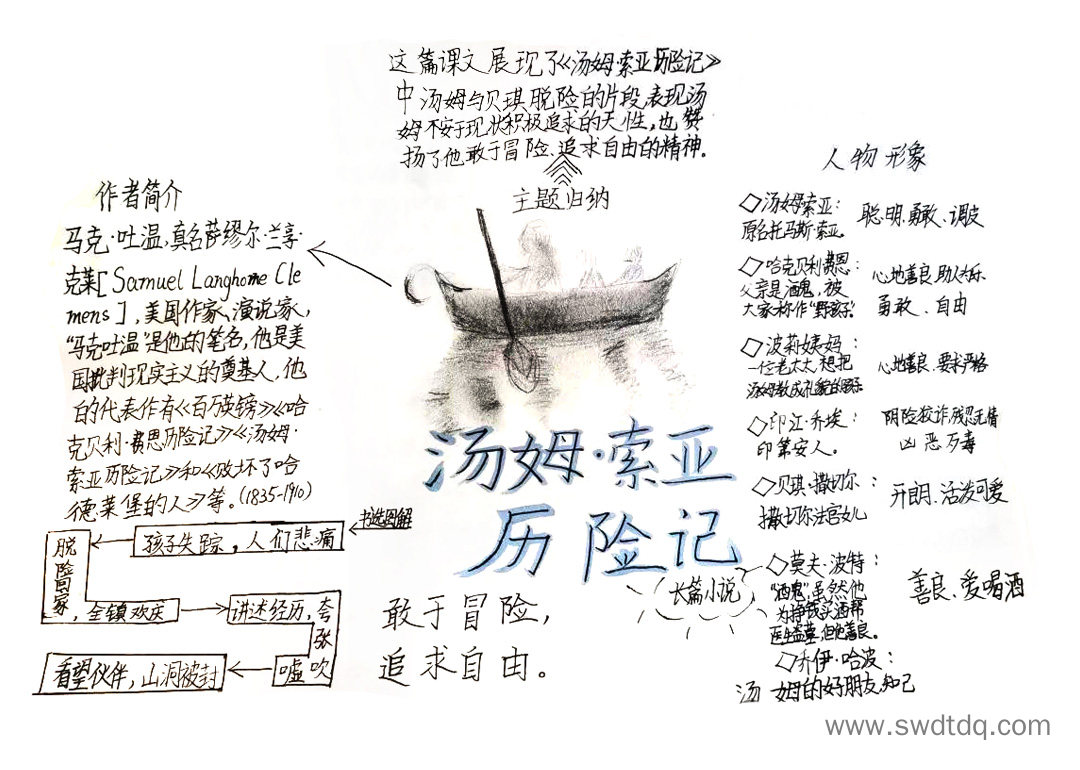 这篇课文展现了《汤姆·索亚历险记》
中汤姆与贝琪脱险的片段,表现汤
姆不安于现状积极追求的天性,也赞
扬了他敢于冒险、追求自由的精神.
主题归纳
作者简介
马克·吐温,真名萨缪尔·兰享·
克莱[Samuel Langhorne Cle
mens],美国作家、演说家,
"马克吐温"是他的笔名,他是美
国批判现实主义的奠基人,他
的代表作有《百万英镑》《哈
克贝利·费恩历险记》《汤姆·
索亚历险记》和《败坏了哈
德莱堡的人》等。(1835-1910)
书选图解
孩子失踪,人们悲痛
脱险回家,全镇欢庆
讲述经历,夸张嘘吹
看望伙伴,山洞被封
汤姆·索亚
历险记
长篇小说
敢于冒险,
追求自由。
人物形象
◇汤姆索亚:
原名托马斯·索亚。
聪明、勇敢、调皮
◇哈克贝利费恩:
父亲是酒鬼,被
大家称作"野孩子"
心地善良、助人为乐
勇敢、自由
◇波莉姨妈:
一位老太太,想把
汤姆教成礼貌的孩子
心地善良、要求严格
◇印江·乔埃:
印第安人。
阴险狡诈,残忍无情
凶恶歹毒
◇贝琪·撒切尔:
撒切尔法官女儿
开朗、活泼可爱
◇莫夫·波特:
"酒鬼",虽然他
为挣钱买酒帮
医生盗墓,但他善良。
善良、爱喝酒
◇乔伊·哈波:
汤姆的好朋友,知己
www.swdtdq.com